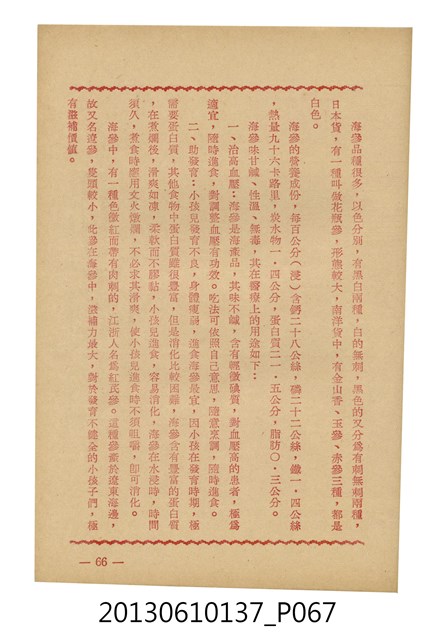 海參品種很多，以色分別，有黑白兩種，白的無刺，黑色的又分為有刺無刺兩種，
日本貨，有一種叫做花瓶參，形態較大，南洋貨中，有金山香、玉參、赤參三種，都是
白色。
海參的營養成份，每百公分（淺）含鈣二十八公絲，磷二十二公絲，鐵一．四公絲
，熱量九十六卡路里，炭水物一．四公分，蛋白質二一．五公分，脂肪〇．三公分。
海參味甘鹹、性溫、無毒，其在醫療上的用途如下：
一、治高血壓：海參是海產品，其味不鹹，含有輕微碘質，對血壓高的患者，極為
適宜，隨時進食，對調整血壓有功效。吃法可依照自己意思，隨意烹調，隨時進食。
二、助發育：小孩兒發育不良，身體瘦弱，進食海參最宜，因小孩在發育時期，極
需要蛋白質，其他食物中蛋白質雖很豐富，但是消化比較困難，海參含有豐富的蛋白質
，在煮爛後，滑爽如凍，柔軟而不膠黏，小孩兒進食，容易消化，海參在水浸時，時間
須久，煮食時應用文火燉爛，不必求其滑爽，使小孩兒進食時不須咀嚼，即可消化。
海參中，有一種色微紅而帶有肉刺的，江浙人名為紅民參。這種參產於遼東海邊，
故又名遼參，隻頭較小，此參在海參中，滋補力最大，對於發育不健全的小孩子們，極
有滋補價值。
— 66 —
20130610137_P067